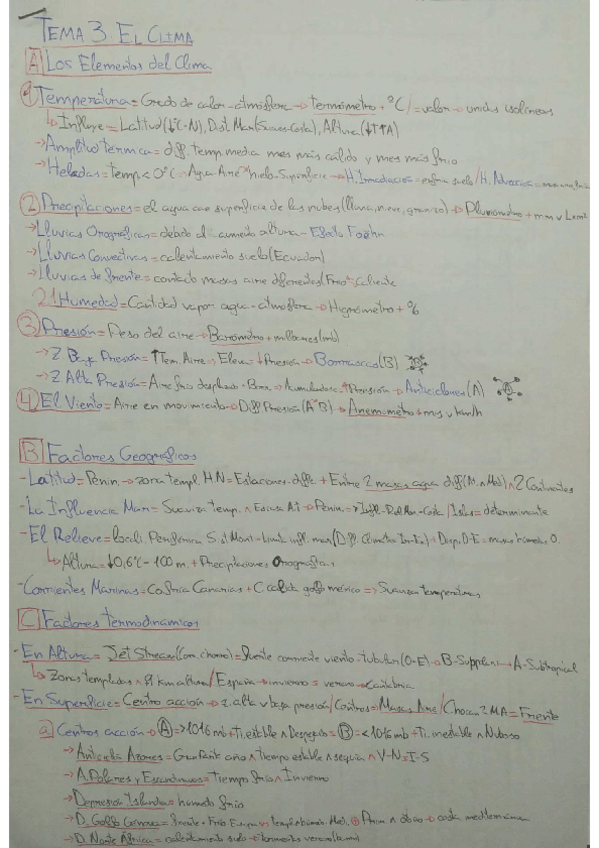 TEMA 3. EL CLIMA
A Los Elementos del Clima
1 Temperatura = Grado de calor - atmósfera → termómetro + °C / = valor → unidas isolíneas
↳ Influye = Latitud (↓°C-N), Dist. Mar (Suaves-Costa), Altura (↓T↑A)
→ Amplitud térmica = diff. temp. media mes más cálido y mes más frío
→ Heladas = temp < 0°C → Agua - Aire → hielo - Superficie → H. Irradiación = enfría suelo / H. Advección =
2 Precipitaciones = el agua cae superficie de las nubes (lluvia, nieve, granizo) → Pluviómetro + mm v
→ Lluvias Orográficas = debido al aumento altura - Efecto Foëhn
→ Lluvias Convectivas = calentamiento suelo (Ecuador)
→ Lluvias de frente = contacto masas aire diferentes (Frío - Caliente
2.1 Humedad = Cantidad vapor agua - atmósfera → Higrómetro + %
3 Presión = Peso del aire → Barómetro + milibares (mb)
→ Z Baja Presión = ↑Tem. Aire → Eleva = ↓Presión → Borrascas (B)
→ Z Alta Presión = Aire frío desplaza - Baja → Acumulación = ↑Presión → Anticiclones (A)
4 El Viento = Aire en movimiento → Diff. Presión (A-B) → Anemómetro + m/s v km/h
B Factores Geográficos
- Latitud = Penín. → zona templ. HN = Estaciones diff. + Entre 2 masas agua diff (At. ∧ Med) ∧ 2 Continentes
- La Influencia Mar = Suaviza temp. ∧ Escasa A.t → Penín. = Infl. - Costa / Islas = determinante
- El Relieve = locali. Periférica S. Mont = limita infl. mar (Diff. Climática In-Ex) + Disp. O-E = masas húmedas O.
↳ Altura = ↓0,6°C - 100 m + Precipitaciones Orográficas
- Corrientes Marinas = Co fría Canarias + C cálida golfo méxico => Suaviza temperaturas
C Factores termodinámicos
- En Altura = Jet Stream (Corr. chorro) = fuerte corriente viento - tubular (O-E) → B-Subpolar - A-Subtropical
↳ Zonas templadas ∧ 9-11 km altura / España → invierno = verano → Cantábrica
- En Superficie = Centro acción → z. alta v baja presión / Contros = Masas Aire / Chocan 2 MA = Frente
a) Centros acción → A => 1016 mb + Ti. estable ∧ Despejado = B = < 1016 mb + Ti. inestable ∧ Nuboso
→ Anticicló Azores = Gran Parte año ∧ Tiempo estable ∧ sequía ∧ V-N = I-S
→ A. Polares y Escandinavos = Tiempo frío ∧ Invierno
→ Depresión Islandia = húmedo frío
→ D. Golfo Génova = frente + Frío Europa vs temp. húmedo Med. ∧ otoño → costa mediterránea
→ D. Norte África = calentamiento suelo → tormentas verano